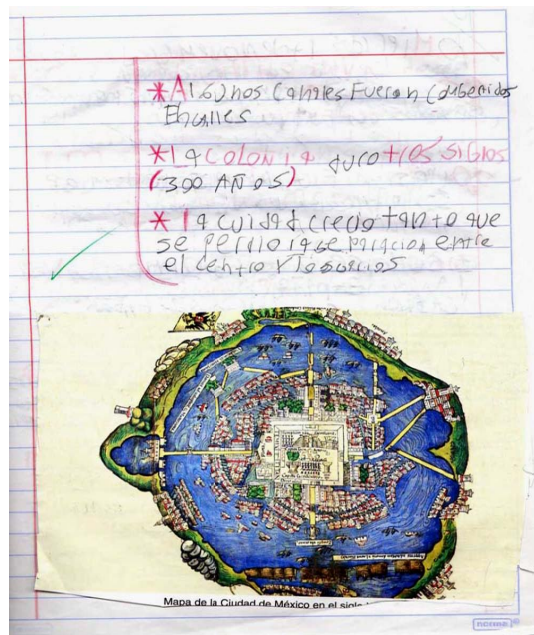 *Algunos Canales Fueron Combertidos
En calles
*la colonia duro tres siglos
(300 AÑOS)
* la cuidad crecio tanto que
se perdio la separacion entre
el centro y los barrios
Mapa de la Ciudad de México en el siglo
norma